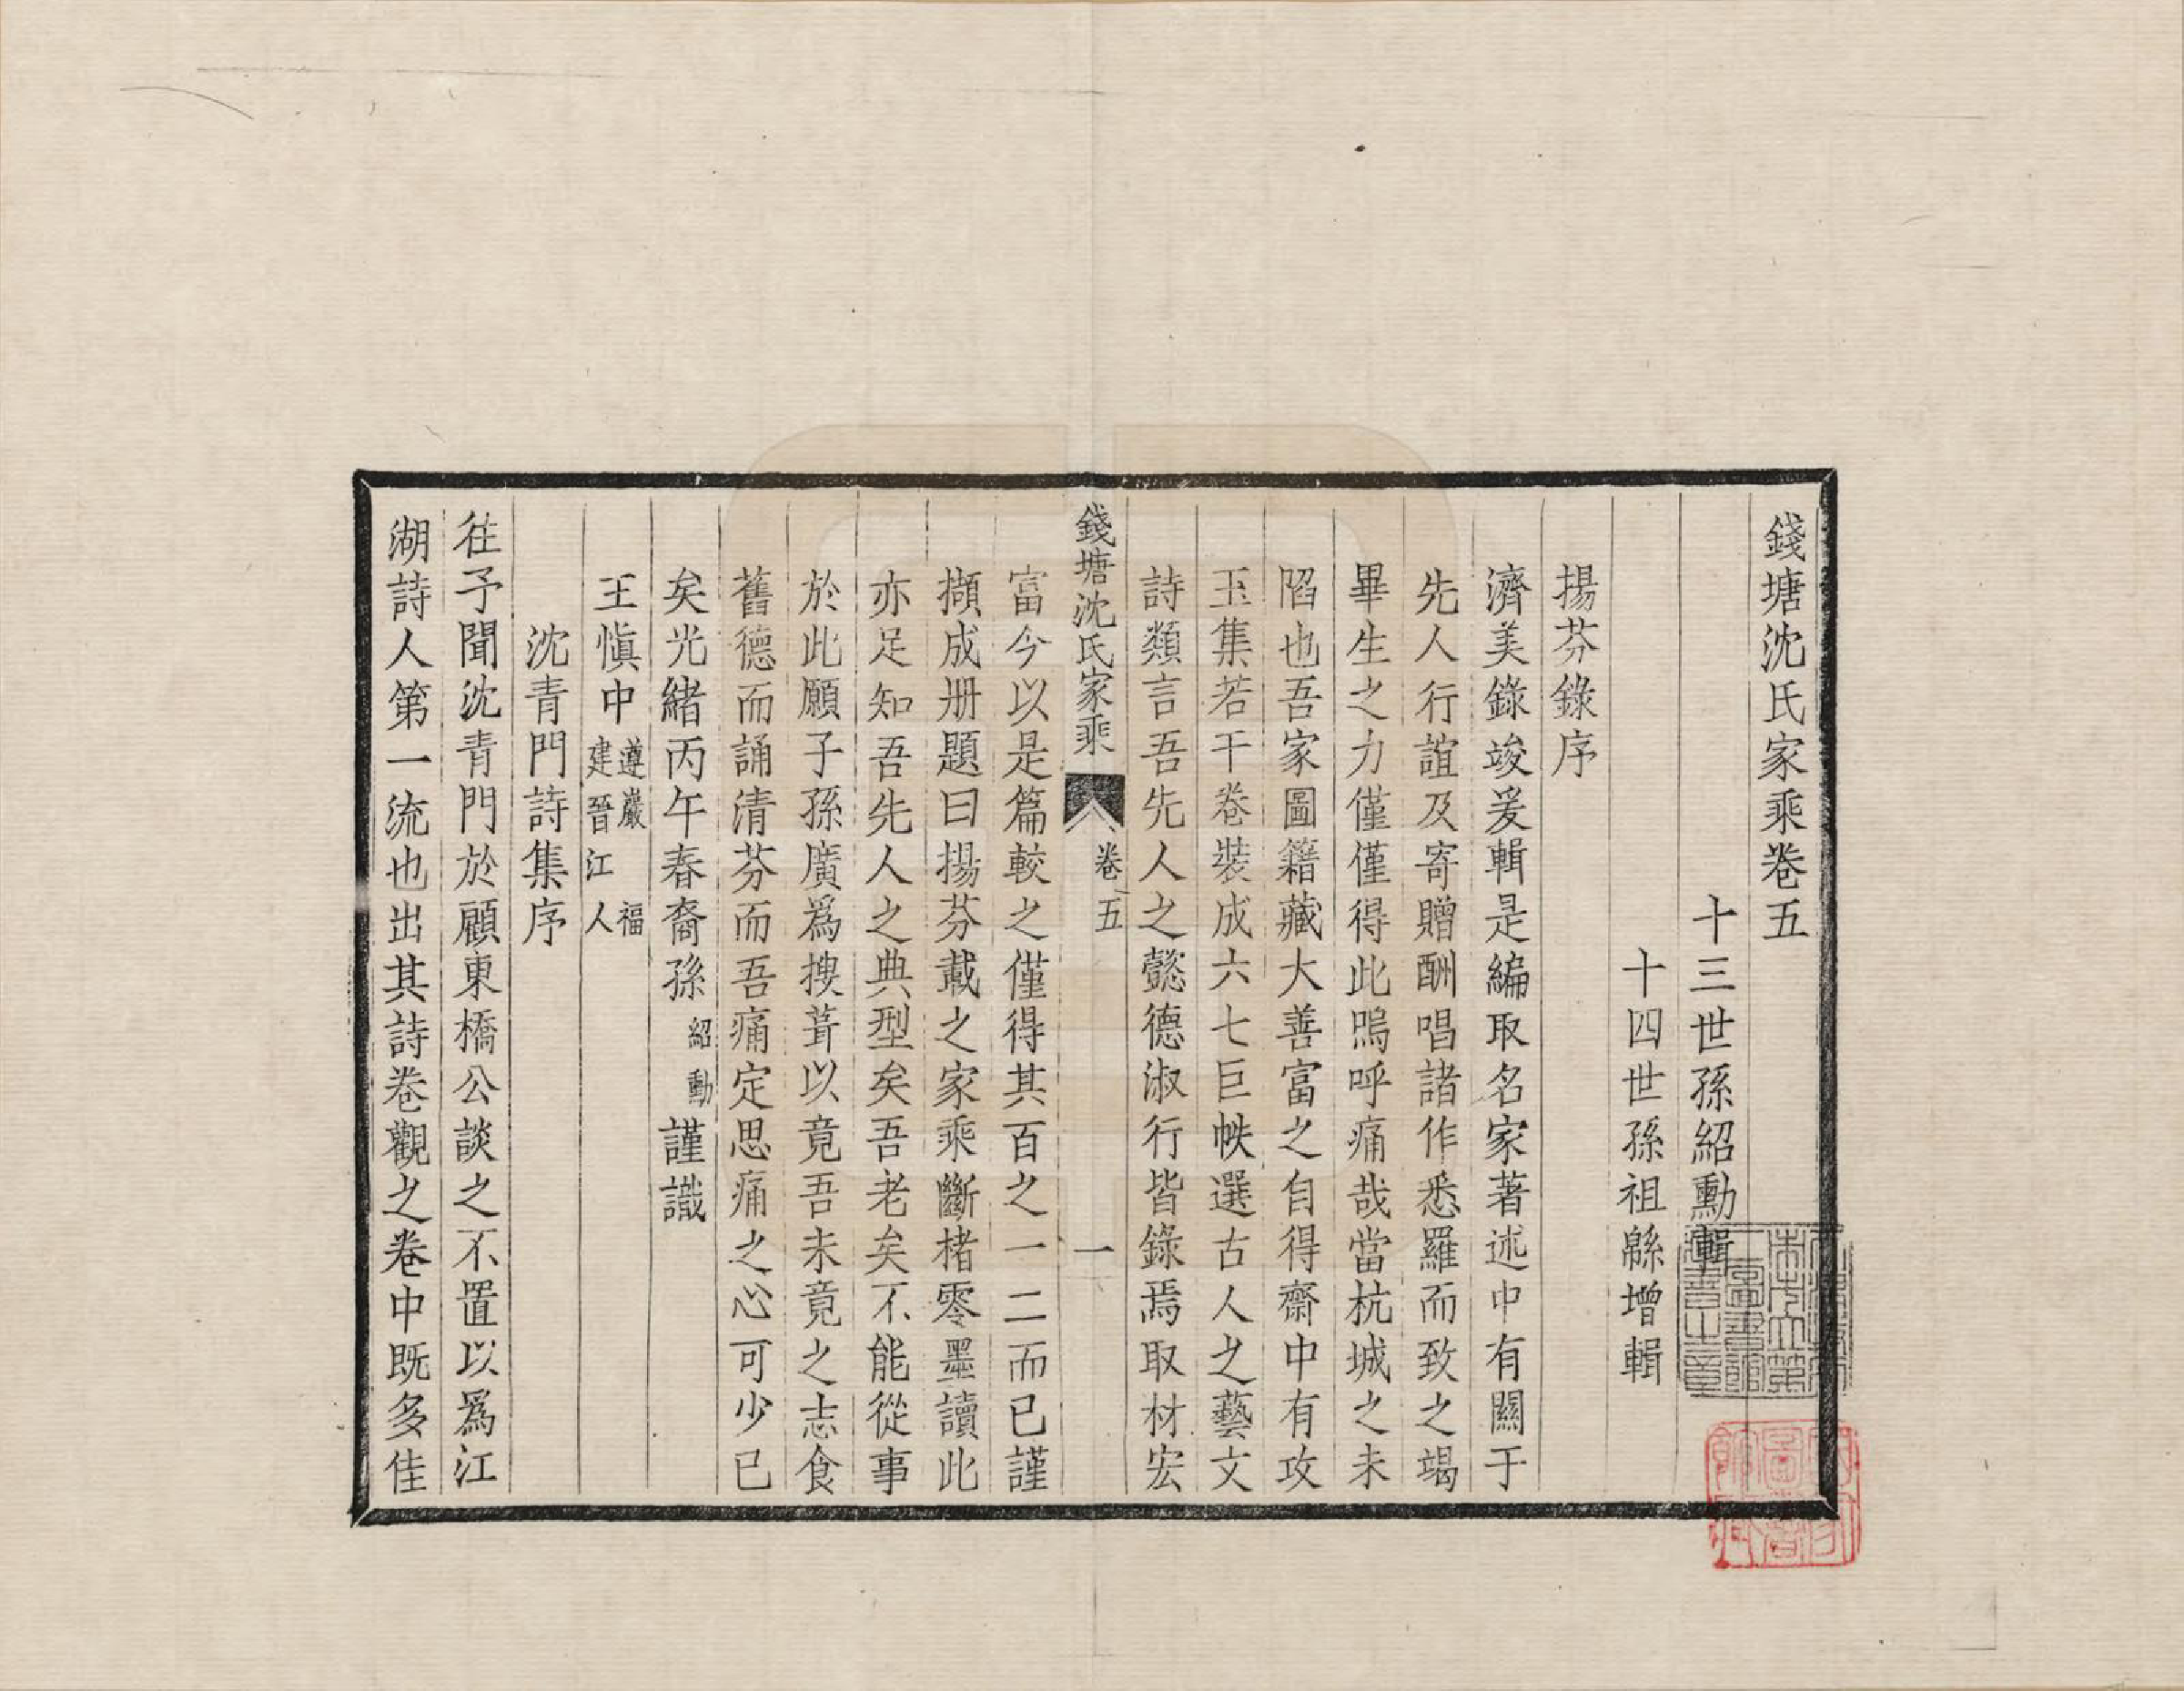 錢塘沈氏家乘卷五
十三世孫紹勳輯
十四世孫祖緜增輯
揚芬錄序
濟美錄竣爰輯是編取名家著述中有關于
先人行誼及寄贈酬唱諸作悉羅而致之竭
畢生之力僅僅得此嗚呼痛哉當杭城之未
陷也吾家圖籍藏大善富之自得齋中有攻
玉集若干卷裝成六七巨帙選古人之藝文
詩類言吾先人之懿德淑行皆錄焉取材宏
錢塘沈氏家乘 卷五 一
富今以是篇較之僅得其百之一二而已謹
擷成册題曰揚芬載之家乘斷楮零墨讀此
亦足知吾先人之典型矣吾老矣不能從事
於此願子孫廣爲搜葺以竟吾未竟之志食
舊德而誦清芬而吾痛定思痛之心可少已
矣光緒丙午春裔孫紹勳謹識
王愼中遵巖福建晉江人
沈青門詩集序
往予聞沈青門於顧東橋公談之不置以爲江
湖詩人第一流也出其詩卷觀之卷中既多佳